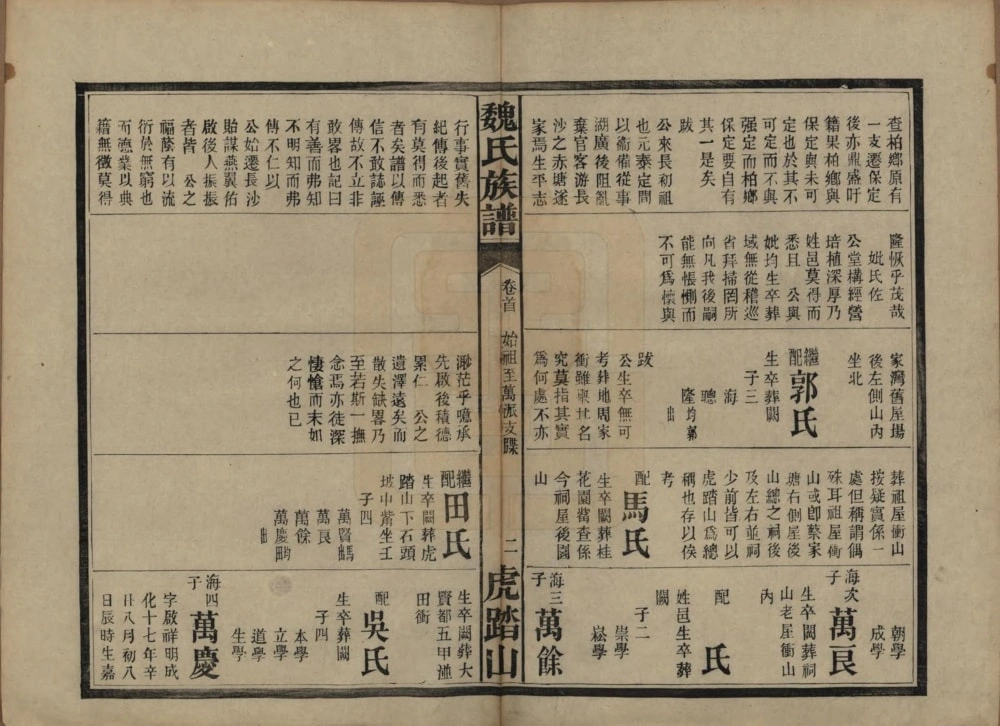 查柏鄉原有
一支遷保定
後亦鼎盛吁
籍果柏鄉與
保定與未可
定也於其不
可定而不與
强定而柏鄉
保定要自有
其一是矣
跋
公來長初祖
也元泰定間
以衞備從事
湖廣後阻亂
棄官客游長
沙之赤塘遂
家焉生平志
行事實舊失
紀傳後起者
有莫得而悉
者矣譜以傳
信不敢誌誣
傳故不立非
敢畧也記曰
有善而弗知
不明知而弗
傳不仁以
公始遷長沙
貽謀燕翼佑
啟後人振振
者皆 公之
福蔭有以流
衍於無窮也
而德業以典
籍無徵莫得
隆恢乎茂哉
妣氏佐
公堂構經營
培植深厚乃
姓邑莫得而
悉且 公與
妣均生卒葬
域無從稽巡
省拜掃罔所
向凡我後嗣
能無悵惻而
不可爲懷與
家灣舊屋場
後左側山内
坐北
繼配郭氏
生卒葬闕
子三
海
聰
隆均郭出
跋
公生卒無可
考葬地周家
衝雖與其名
究莫指其實
爲何處不亦
渺茫乎噫承
先啟後積德
累仁 公之
遺澤遠矣而
散失缺畧乃
至若斯一撫
念焉亦徒深
悽愴而末如
之何也已
葬祖屋衝山
按疑實係一
處但稱謂偶
殊耳祖屋衝
山或卽蔡家
塘右側屋後
山總之祠後
及左右並祠
少前皆可以
虎踏山爲總
稱也存以俟
考
配馬氏
生卒闕葬桂
花園觜查係
今祠屋後園
山
繼配田氏
生卒闕葬虎
踏山下石頭
坡中觜坐壬
子四
萬賢馬出
萬良
萬餘
萬慶均田出
朝學
成學
海次子萬良
生卒闕葬祠
山老屋衝山
内
配 氏
姓邑生卒葬
闕
子二
崇學
嶽學
海三子萬餘
生卒闕葬大
賢都五甲湴
田衝
配吳氏
生卒葬闕
子四
本學
立學
道學
生學
海四子萬慶
字啟祥明成
化十七年辛
丑八月初八
日辰時生嘉
魏氏族譜
卷首 始祖至萬派支牒
二
虎踏山